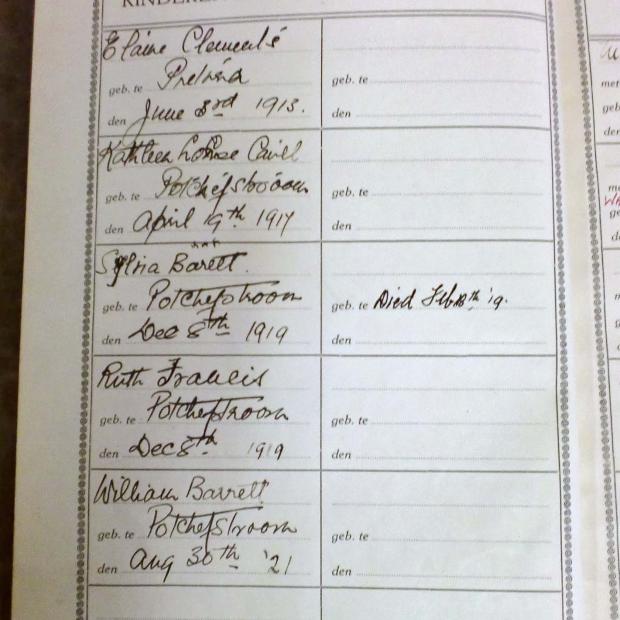 KINDEREN
Elaine Clements
geb. te Pretoria
den June 3rd 1913.
geb. te
den
Kathleen Louise Cavell
geb. te Potchefstroom
den April 19th 1917
geb. te
den
Sylvia Barett.
geb. te Potchefstroom
den Dec 8th 1919
geb. te Died Feb 18th '19.
den
Ruth Francis
geb. te Potchefstroom
den Dec 8th 1919
geb. te
den
William Barrett
geb. te Potchefstroom
den Aug 30th '21
geb. te
den